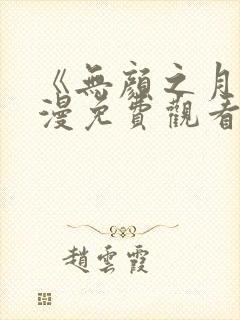 《無顏之月
漫免費觀看
趙雲霞